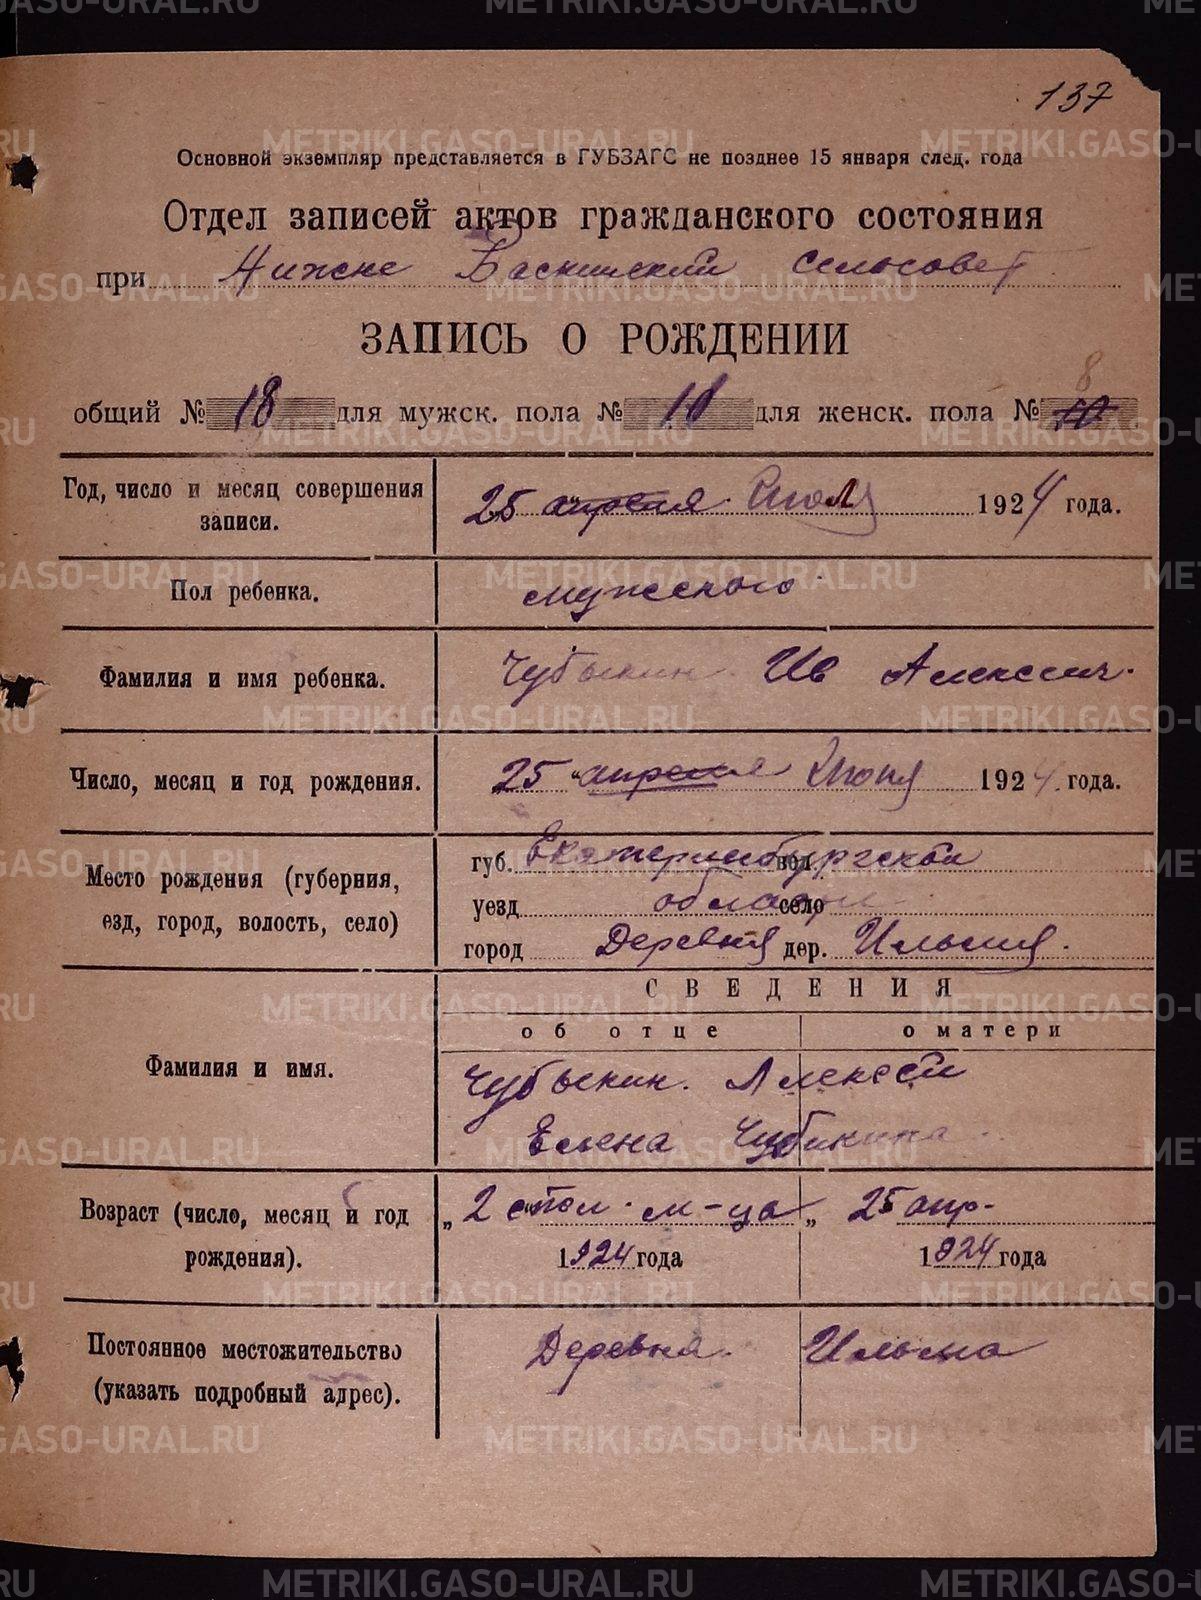 137
Основной экземпляр представляется в ГУБЗАГС не позднее 15 января след. года
Отдел записей актов гражданского состояния
при Нижне Баскинский сельсовет
ЗАПИСЬ О РОЖДЕНИИ
8
общий № 18 для мужск. пола № 10 для женск. пола № 10
Год, число и месяц совершения записи. 25 апреля Июля 1924 года.
Пол ребенка. мужского
Фамилия и имя ребенка. Чубыкин Ив Алексеич.
Число, месяц и год рождения. 25 апреля Июня 1924 года.
Место рождения (губерния, езд, город, волость, село)
губ. Екатеринбургской вол.
уезд области село
город Деревня дер. Ильма.
СВЕДЕНИЯ
об отце о матери
Фамилия и имя. Чубыкин. Алексей
Елена Чубикина
Возраст (число, месяц и год рождения). „ 2 с пол. м-ца „ 25 апр.
1924 года 1924 года
Постоянное местожительство (указать подробный адрес). Деревня Ильма
METRIKI.GASO-URAL.RU